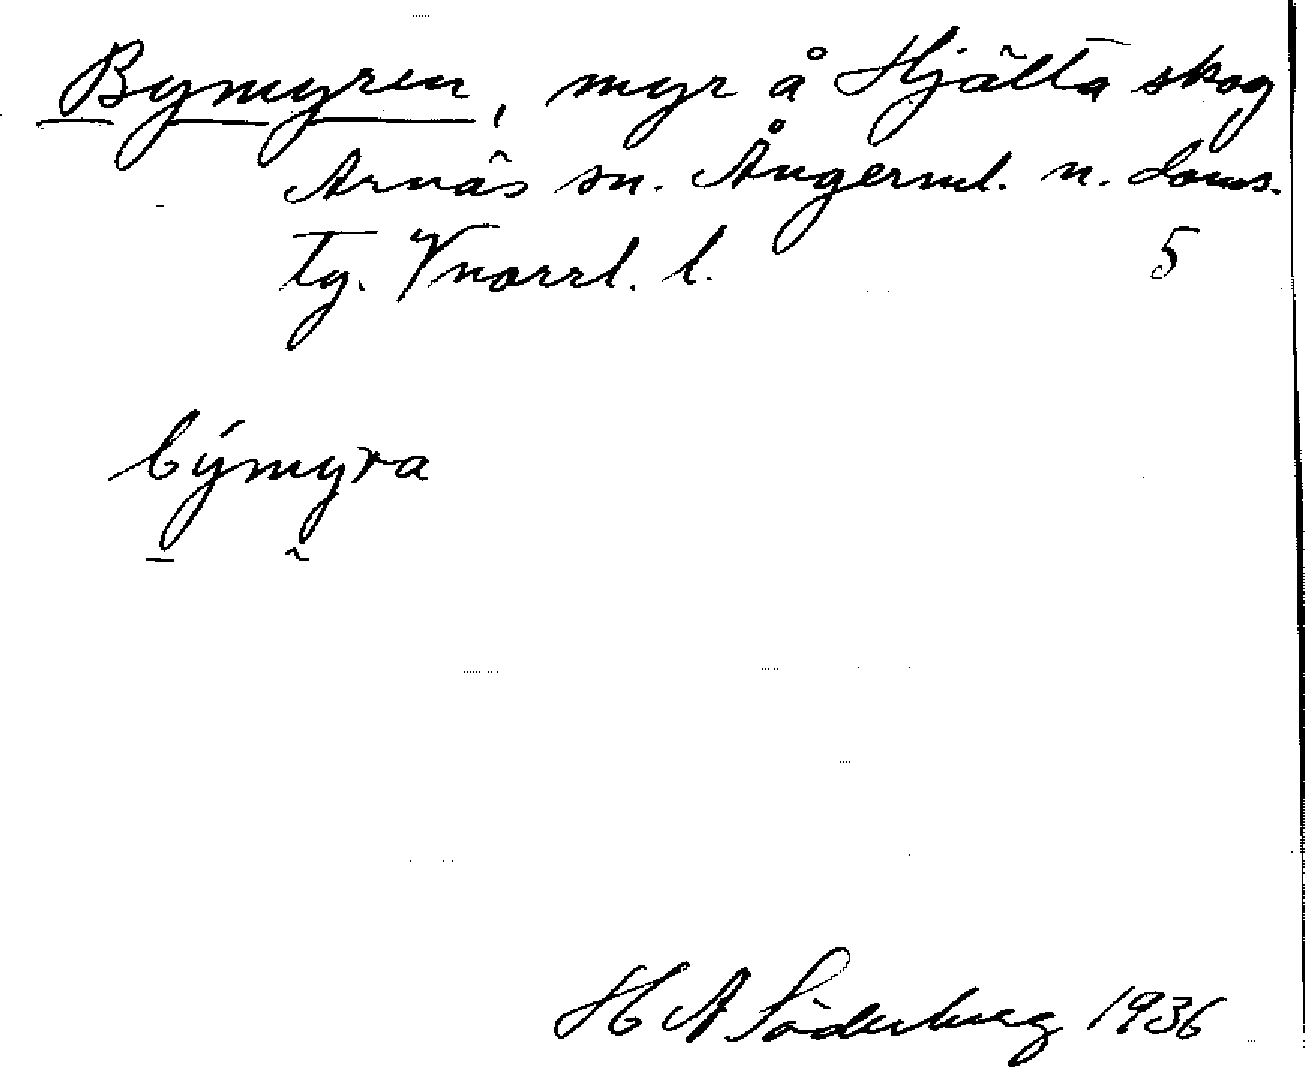 Bymyren, myr å Hjälta skog
Arnäs sn. Ångerml. n. Doms.
Tg. Vnorrl. l. 5
býmyra
H A Söderberg 1936